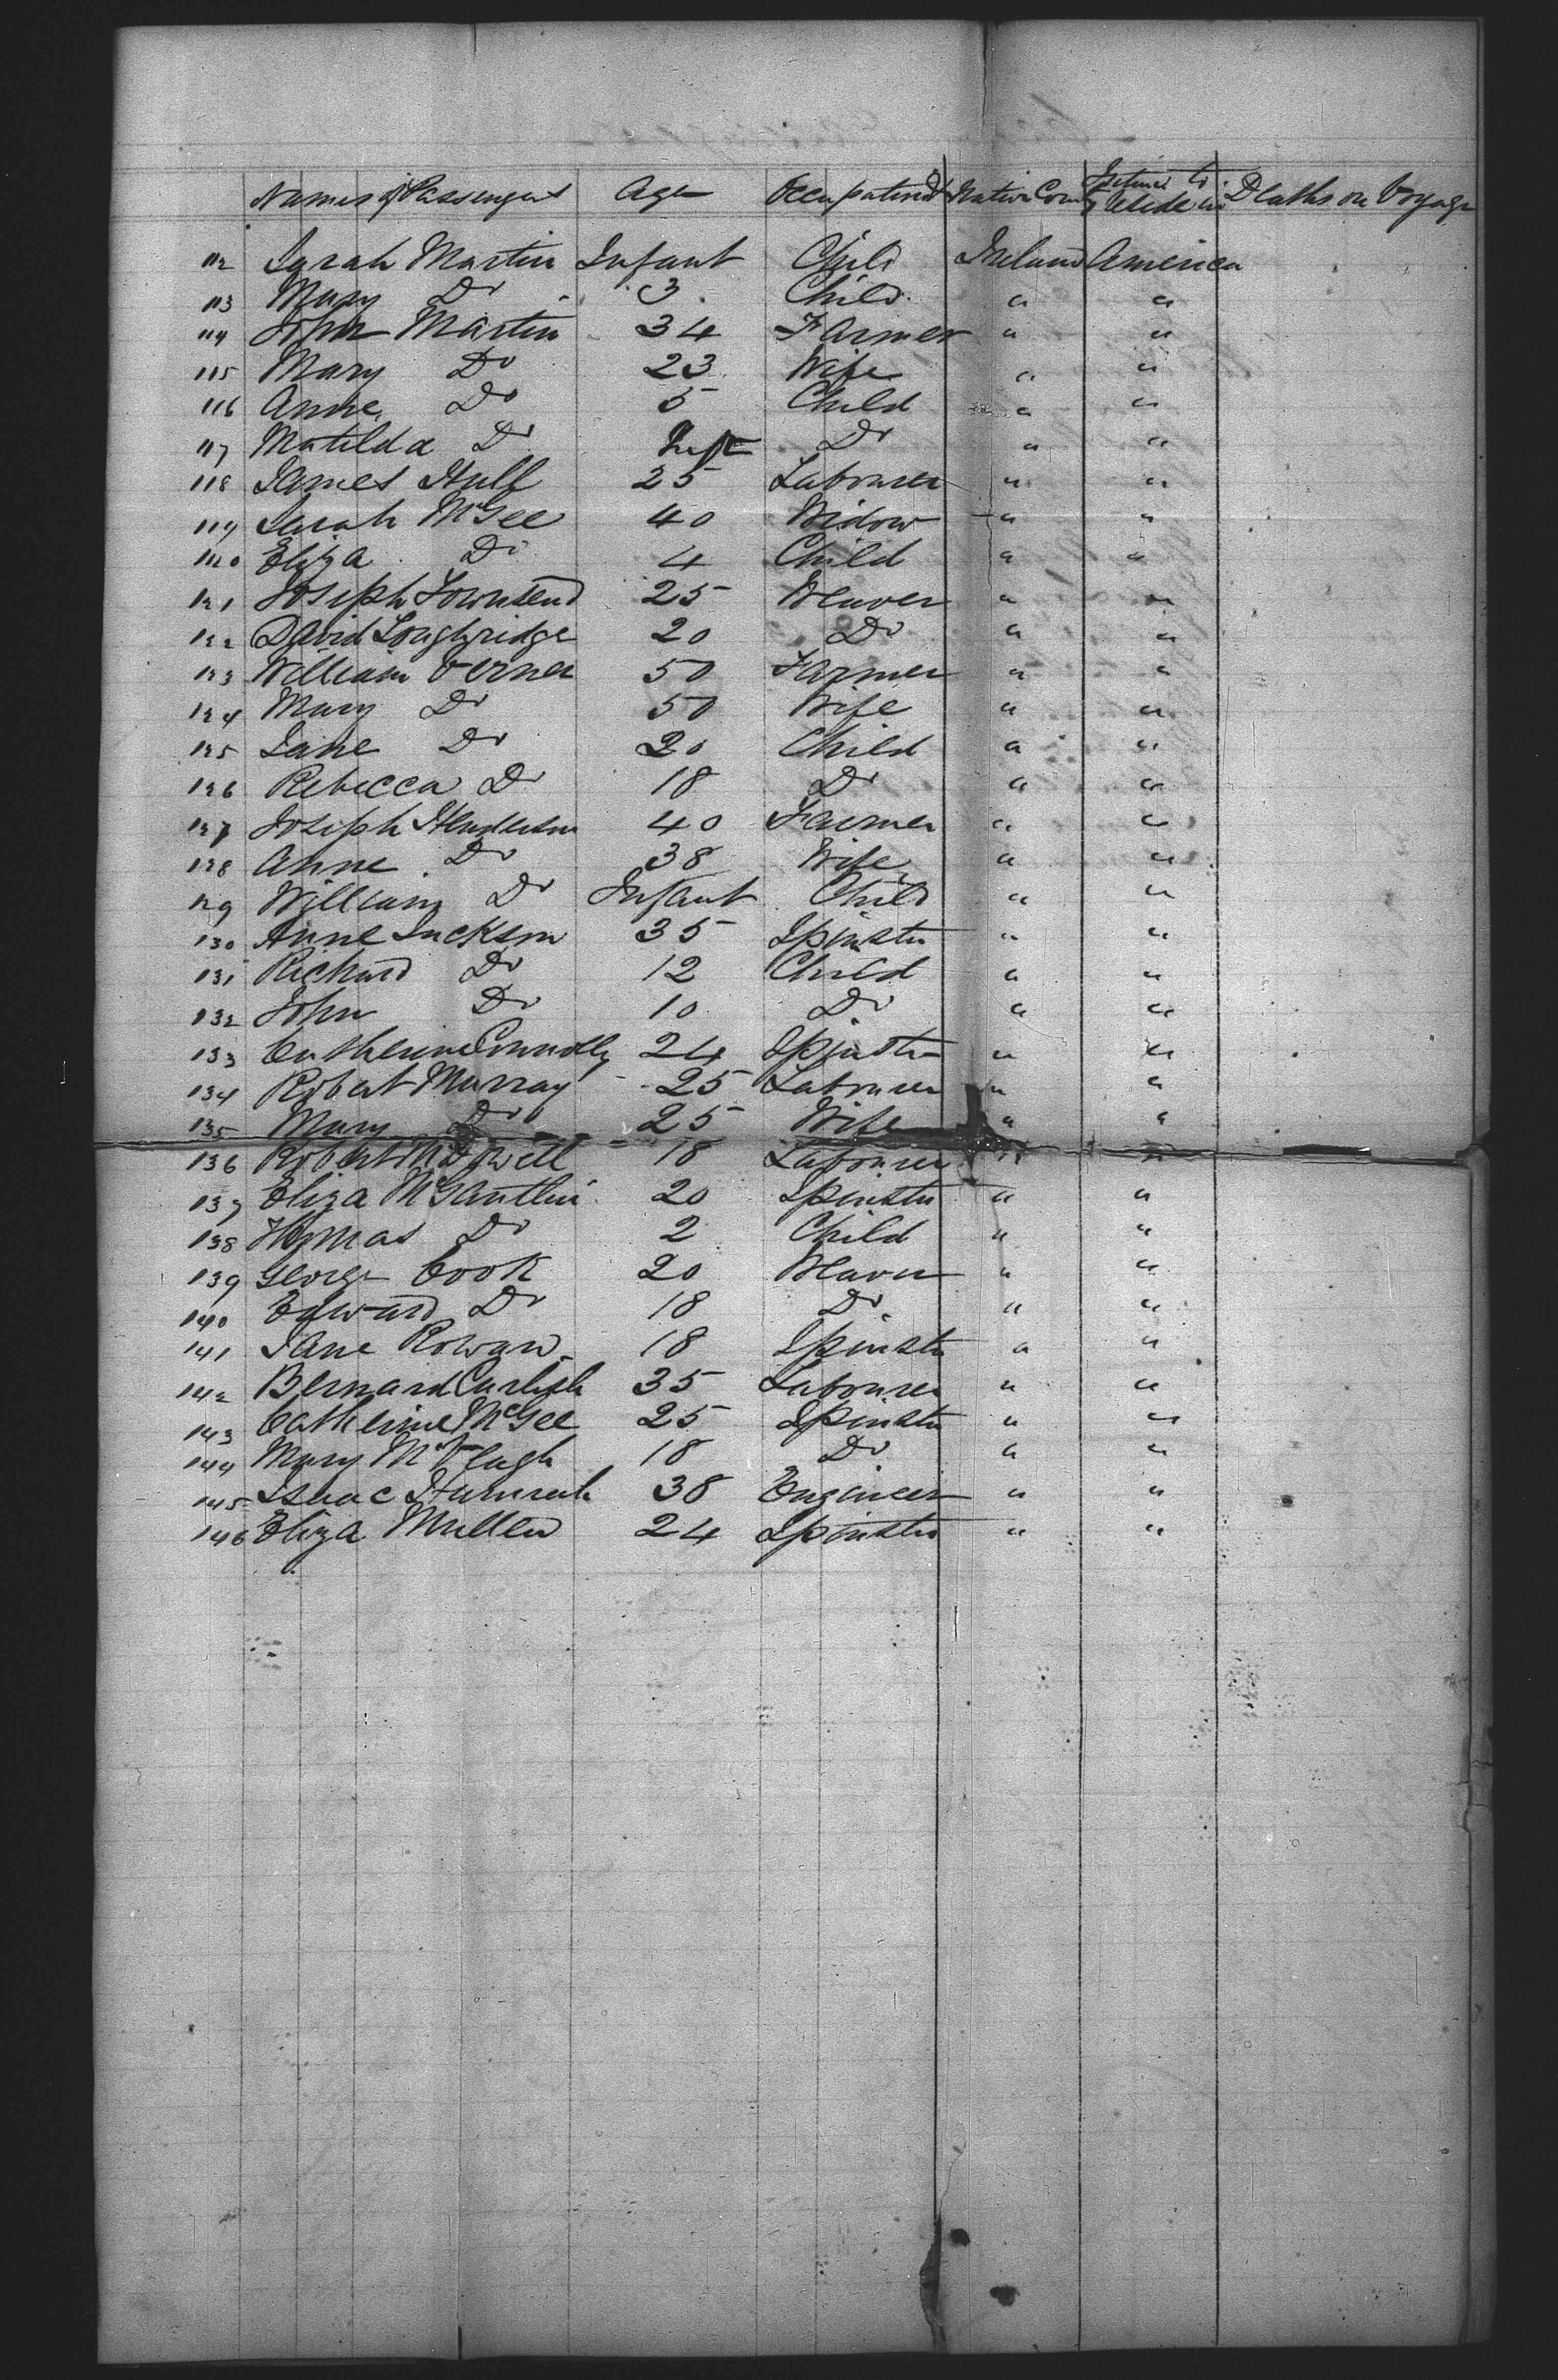 Names of Passengers Age Occupation Native Country Intend to reside in Deaths on Voyage
112 Sarah Martin Infant Child Ireland America
113 Mary Do 3 Child " "
114 John Martin 34 Farmer " "
115 Mary Do 23 Wife " "
116 Anne Do 5 Child " "
117 Matilda Do Inft Do " "
118 James Hull 25 Labourer " "
119 Sarah McGee 40 Widow " "
120 Eliza Do 4 Child " "
121 Joseph Townsend 25 Weaver " "
122 David Loughridge 20 Do " "
123 William Verner 50 Farmer " "
124 Mary Do 50 Wife " "
125 Jane Do 20 Child " "
126 Rebecca Do 18 Do " "
127 Joseph Henderson 40 Farmer " "
128 Anne Do 38 Wife " "
129 William Do Infant Child " "
130 Anne Jackson 35 Spinster " "
131 Richard Do 12 Child " "
132 John Do 10 Do " "
133 Catherine Connolly 24 Spinster " "
134 Robert Murray 25 Labourer " "
135 Mary Do 25 Wife " "
136 Robert McDowell 18 Labourer " "
137 Eliza 20 Spinster " "
138 Thomas Do 2 Child " "
139 George Cook 20 Weaver " "
140 Edward Do 18 Do " "
141 Jane Rowan 18 Spinster " "
142 Bernard 35 Labourer " "
143 Catherine McGee 25 Spinster " "
144 Mary McVeagh 18 Do " "
145 Isaac 38 Engineer " "
146 Eliza Mullen 24 Spinster " "